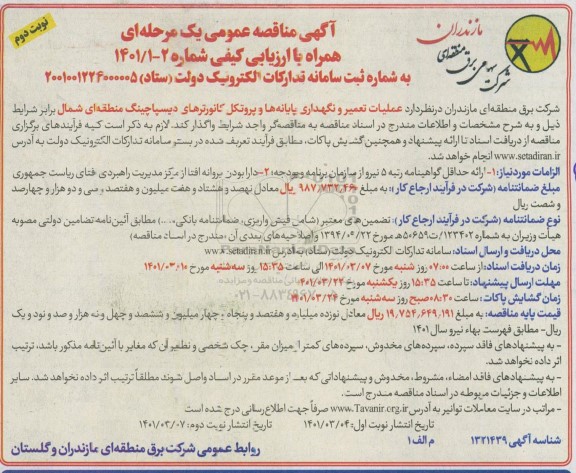 نوبت دوم
آگهی مناقصه عمومی یک مرحله‌ای
همراه با ارزیابی کیفی شماره ۲-۱۴۰۱/۱
به شماره ثبت سامانه تدارکات الکترونیک دولت (ستاد) ۲۰۰۱۰۰۱۲۲۴۰۰۰۰۰۵
مازندران
شرکت سهامی برق منطقه‌ای
شرکت برق منطقه‌ای مازندران درنظردارد عملیات تعمیر و نگهداری پایانه‌ها و پروتکل کانورترهای دیسپاچینگ منطقه‌ای شمال برابر شرایط
ذیل و به شرح مشخصات و اطلاعات مندرج در اسناد مناقصه به مناقصه‌گر واجد شرایط واگذار کند. لازم به ذکر است کلیه فرآیندهای برگزاری
مناقصه از دریافت اسناد تا ارائه پیشنهاد و همچنین گشایش پاکات، مطابق فرآیند تعریف شده در بستر سامانه تدارکات الکترونیک دولت به آدرس
www.setadiran.ir انجام خواهد شد.
الزامات موردنیاز: ۱- ارائه حداقل گواهینامه رتبه ۵ نیرو از سازمان برنامه وبودجه؛ ۲- دارا بودن پروانه افتا از مرکز مدیریت راهبردی افتای ریاست جمهوری
مبلغ ضمانتنامه (شرکت در فرآیند ارجاع کار): به مبلغ ۹۸۷,۷۳۲,۴۶۰ ریال معادل نهصد و هشتاد و هفت میلیون و هفتصد و سی و دو هزار و چهارصد
و شصت ریال
نوع ضمانتنامه (شرکت در فرآیند ارجاع کار): تضمین‌های معتبر (شامل فیش واریزی، ضمانتنامه بانکی، ...) مطابق آئین‌نامه تضامین دولتی مصوبه
هیأت وزیران به شماره ۱۲۳۴۰۲/ت۵۰۶۵۹هـ مورخ ۱۳۹۴/۰۹/۲۲ و اصلاحیه‌های بعدی آن (مندرج در اسناد مناقصه)
محل دریافت و ارسال اسناد: سامانه تدارکات الکترونیک دولت (ستاد) به آدرس www.setadiran.ir
زمان دریافت اسناد: از ساعت ۰۷:۰۰ روز شنبه مورخ ۱۴۰۱/۰۳/۰۷ الی ساعت ۱۵:۳۵ روز سه‌شنبه مورخ ۱۴۰۱/۰۳/۱۰
مهلت ارسال پیشنهاد: تا ساعت ۱۵:۳۵ روز یکشنبه مورخ ۱۴۰۱/۰۳/۲۲
زمان گشایش پاکات: ساعت ۰۸:۳۰ صبح روز سه‌شنبه مورخ ۱۴۰۱/۰۳/۲۴
قیمت پایه مناقصه: به مبلغ ۱۹,۷۵۴,۶۴۹,۱۹۱ ریال معادل نوزده میلیارد و هفتصد و پنجاه و چهار میلیون و ششصد و چهل و نه هزار و صد و نود و یک
ریال- مطابق فهرست بهاء نیرو سال ۱۴۰۱
- به پیشنهادهای فاقد سپرده، سپرده‌های مخدوش، سپرده‌های کمتر از میزان مقرر، چک شخصی و نظیر آن که مغایر با آئین‌نامه مذکور باشد، ترتیب
اثر داده نخواهد شد.
- به پیشنهادهای فاقد امضاء، مشروط، مخدوش و پیشنهاداتی که بعد از موعد مقرر در اسناد واصل شوند مطلقاً ترتیب اثر داده نخواهد شد. سایر
اطلاعات و جزئیات مربوطه در اسناد مناقصه مندرج است.
- مراتب در سایت معاملات توانیر به آدرس www.Tavanir.org.ir صرفاً جهت اطلاع‌رسانی درج شده است
تاریخ انتشار نوبت اول: ۱۴۰۱/۰۳/۰۴ تاریخ انتشار نوبت دوم: ۱۴۰۱/۰۳/۰۷
شناسه آگهی ۱۳۲۱۴۳۹ م الف ۱ روابط عمومی شرکت برق منطقه‌ای مازندران و گلستان